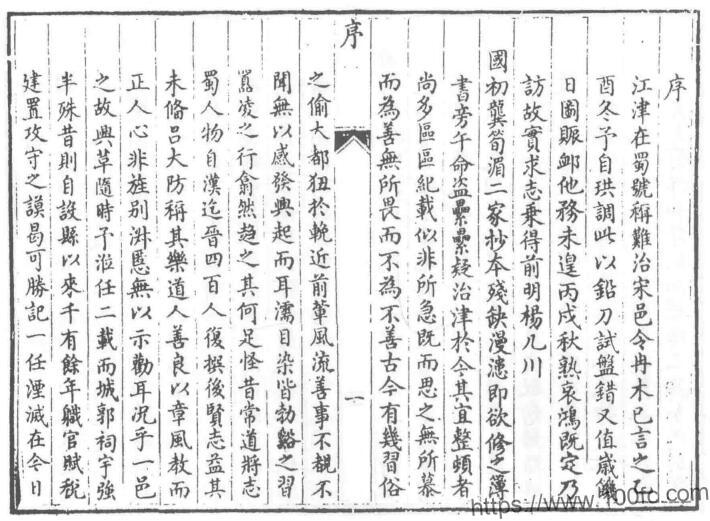 序
江津在蜀號稱難治宋邑令冉木已言之乙
酉冬予自珙調此以鉛刀試盤錯又值嵗饑
日圖賑䘏他務未遑丙戌秋熟哀鴻既定乃
訪故實求志乗得前明楊几川
國初龔筍湄二家抄本殘缺漫漶即欲修之簿
書旁午命盗纍纍疑治津於今其宜整頓者
尚多區區紀載似非所急既而思之無所慕
而為善無所畏而不為不善古今有幾習俗
序
一
之偷大都狃於輓近前軰風流善事不覩不
聞無以感發興起而耳濡目染皆勃谿之習
嚚凌之行翕然趋之其何足怪昔常道將志
蜀人物自漢迄晉四百人復撰後賢志益其
未備吕大防稱其樂道人善良以章風教而
正人心非旌别淑慝無以示勸耳況乎一邑
之故興革隨時予涖任二載而城郭祠宇強
半殊昔則自設縣以來千有餘年職官賦稅
建置攻守之謨曷可勝記一任湮滅在今日
https://www.100fc.com